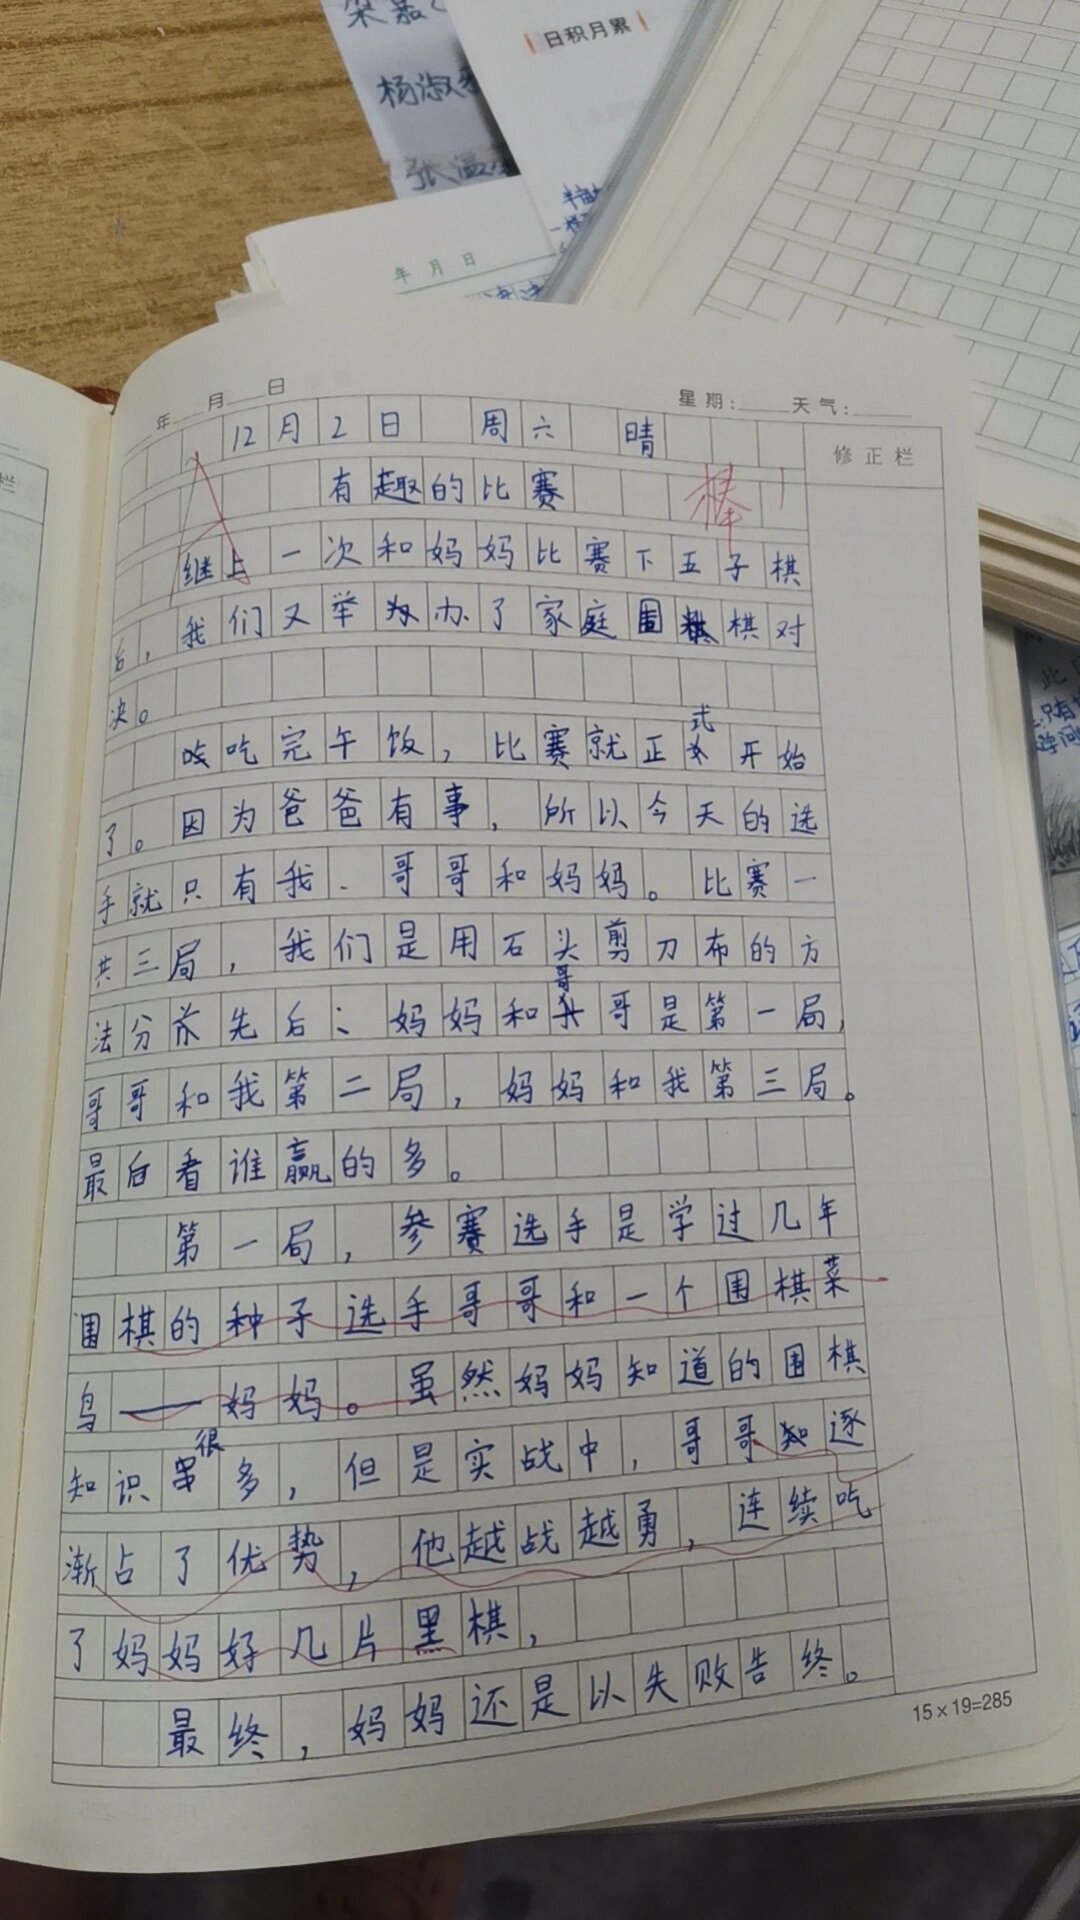 日积月累
年 月 日
年 月 日 星期: 天气:
12月2日 周六 晴
修正栏
有趣的比赛
棒
继上一次和妈妈比赛下五子棋
后，我们又举办了家庭围棋对
决。
吃完午饭，比赛就正式开始
了。因为爸爸有事，所以今天的选
手就只有我、哥哥和妈妈。比赛一
共三局，我们是用石头剪刀布的方
法分先后：妈妈和哥哥是第一局，
哥哥和我第二局，妈妈和我第三局。
最后看谁赢的多。
第一局，参赛选手是学过几年
围棋的种子选手哥哥和一个围棋菜
鸟——妈妈。虽然妈妈知道的围棋
知识很多，但是实战中，哥哥逐
渐占了优势，他越战越勇，连续吃
了妈妈好几片黑棋，
最终，妈妈还是以失败告终。
15×19=285